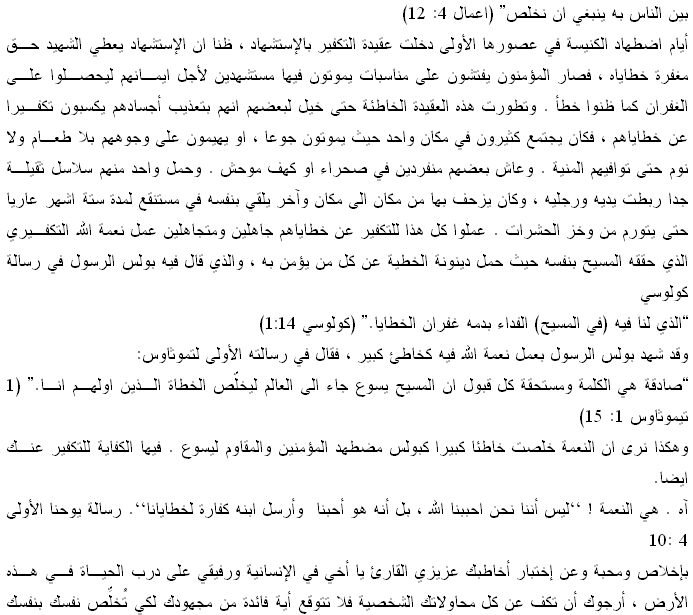 بين الناس به ينبغي ان نخلص" (اعمال 4: 12)
أيام اضطهاد الكنيسة في عصورها الأولى دخلت عقيدة التكفير بالإستشهاد ، ظنا ان الإستشهاد يعطي الشهيد حق
مغفرة خطاياه ، فصار المؤمنون يفتشون على مناسبات يموتون فيها مستشهدين لأجل ايمانهم ليحصلوا على
الغفران كما ظنوا خطأ . وتطورت هذه العقيدة الخاطئة حتى خيل لبعضهم انهم بتعذيب أجسادهم يكسبون تكفيرا
عن خطاياهم ، فكان يجتمع كثيرون في مكان واحد حيث يموتون جوعا ، او يهيمون على وجوههم بلا طعام ولا
نوم حتى توافيهم المنية . وعاش بعضهم منفردين في صحراء او كهف موحش . وحمل واحد منهم سلاسل ثقيلة
جدا ربطت يديه ورجليه ، وكان يزحف بها من مكان الى مكان وآخر يلقي بنفسه في مستنقع لمدة ستة اشهر عاريا
حتى يتورم من وخز الحشرات . عملوا كل هذا للتكفير عن خطاياهم جاهلين ومتجاهلين عمل نعمة الله التكفيري
الذي حققه المسيح بنفسه حيث حمل دينونة الخطية عن كل من يؤمن به ، والذي قال فيه بولس الرسول في رسالة
كولوسي
"الذي لنا فيه (في المسيح) الفداء بدمه غفران الخطايا." (كولوسي 1:14)
وقد شهد بولس الرسول بعمل نعمة الله فيه كخاطئ كبير ، فقال في رسالته الأولى لتموثاوس:
"صادقة هي الكلمة ومستحقة كل قبول ان المسيح يسوع جاء الى العالم ليخلّص الخطاة الذين اولهم انا." (1
تيموثاوس 1: 15)
وهكذا نرى ان النعمة خلصت خاطئا كبيرا كبولس مضطهد المؤمنين والمقاوم ليسوع . فيها الكفاية للتكفير عنك
ايضا.
آه . هي النعمة ! ‘‘ليس أننا نحن احببنا الله ، بل أنه هو أحبنا وأرسل ابنه كفارة لخطايانا‘‘. رسالة يوحنا الأولى
4 :10
بإخلاص ومحبة وعن إختبار أخاطبك عزيزي القارئ يا أخي في الإنسانية ورفيقي على درب الحياة في هذه
الأرض ، أرجوك أن تكف عن كل محاولاتك الشخصية فلا تتوقع أية فائدة من مجهودك لكي تُخلّص نفسك بنفسك